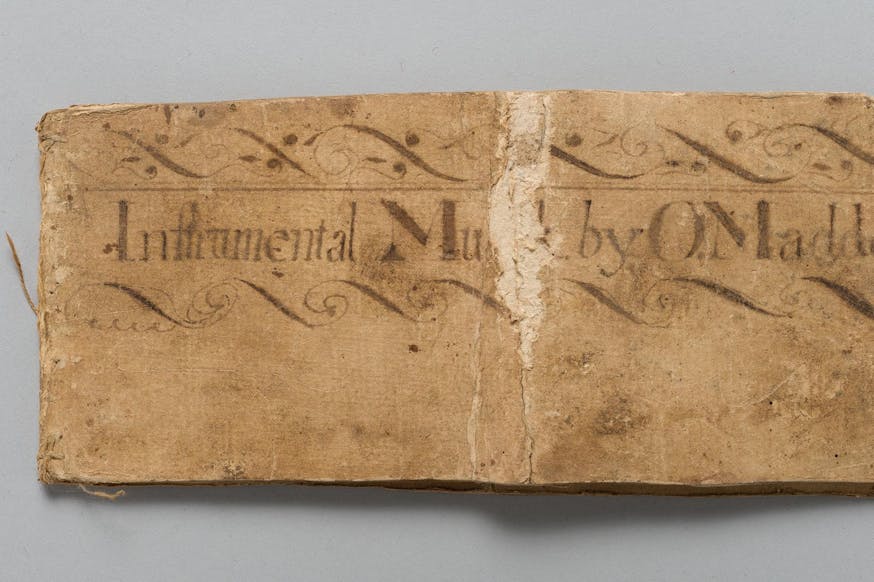 Inſtrumental Mu by O. Madd